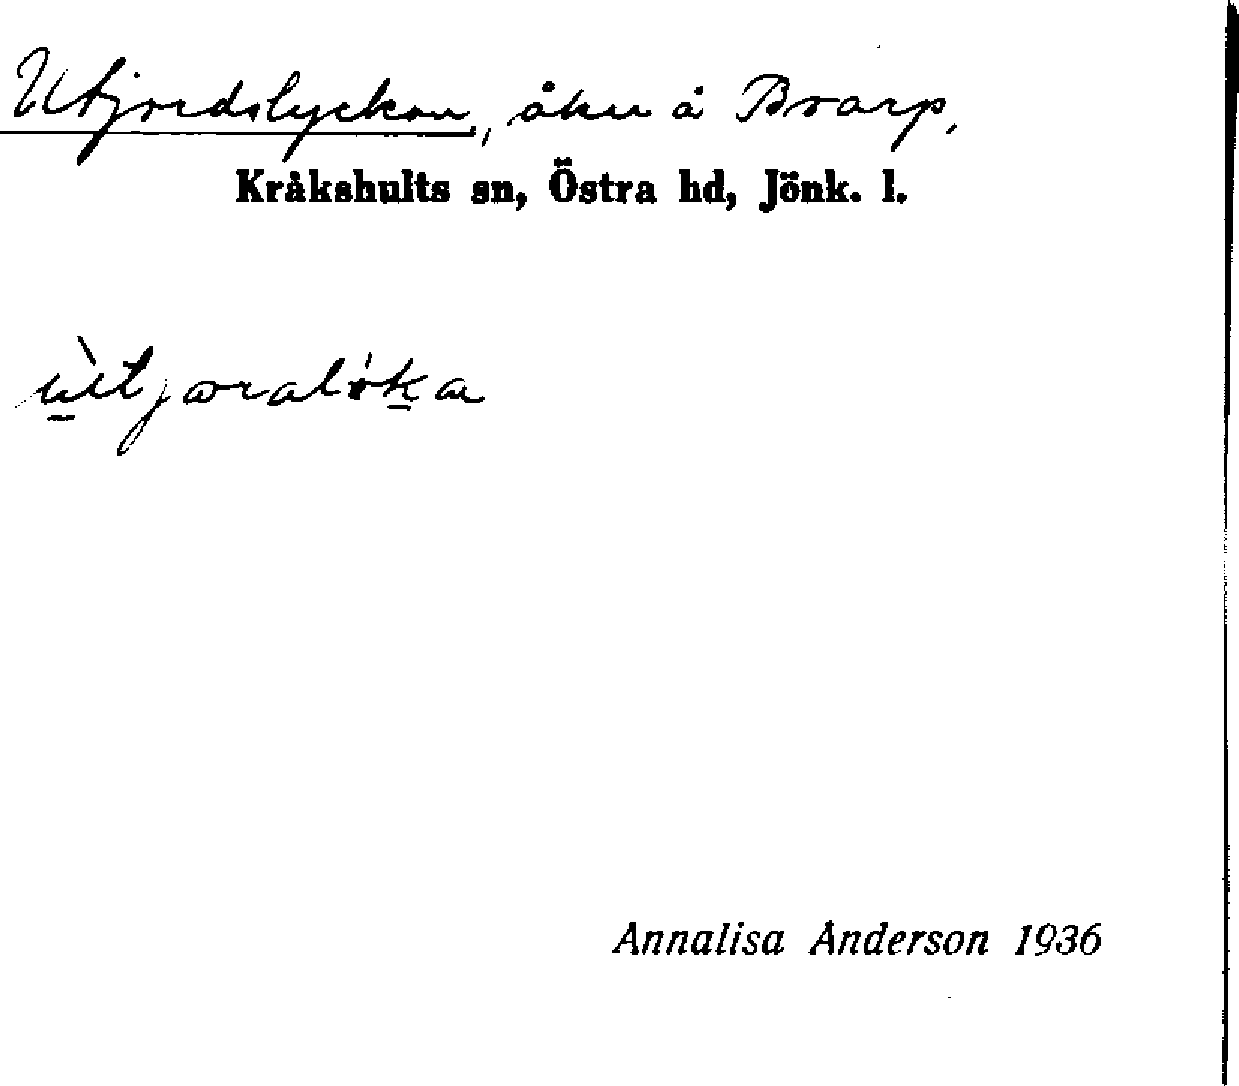 Utjordslyckan, åker å Brarp,
Kråkshults sn, Östra hd, Jönk. l.
Annalisa Anderson 1936